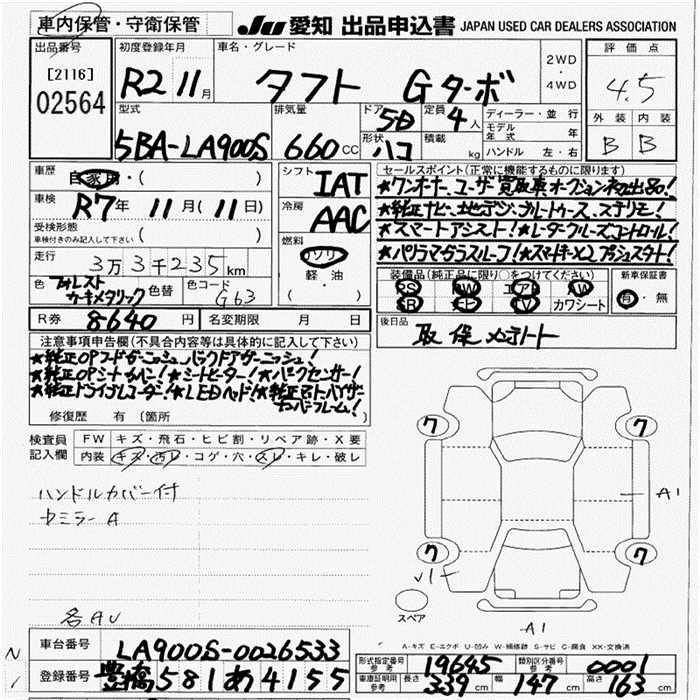 車内保管・守衛保管 JU 愛知 出品申込書 JAPAN USED CAR DEALERS ASSOCIATION
出品番号 初度登録年月 車名・グレード 2WD・4WD 評価点
[2116] 02564 R2 11月 タフト Gターボ 4.5
型式 排気量 ドア 定員 ディーラー・並行 外装 内装
5BA-LA900S 660cc 5D 4人 モデル年式 年 B B
形状 ハコ 積載 kg ハンドル 左・右
車歴 自家用・( ) シフト IAT セールスポイント(正常に機能するものに限ります)
車検 R7年 11月(11日) 冷房 AAC ★ワンオーナーユーザー買取車オークション初出品!
受検形態 ★純正ナビ、地デジ、ブルートゥース、ステリモ!
車検付きのみ記入して下さい( ) 燃料 ガソリン ★スマートアシスト!★レーダークルーズコントロール!
走行 3万3千235km 軽油 ★パノラマガラスルーフ!★スマートキー×2プッシュスタート!
色 フォレストカーキメタリック 色替 色コード G63 ・( )
装備品(純正品に限り○をつけてください) 新車保証書
PS PW エアB AW 有・無
SR ナビ TV カワシート
R券 8640円 名変期限 月 日 後日品 取 保 メンテノート
注意事項申告欄(不具合内容等は具体的に記入して下さい)
★純正OPフードガーニッシュ、バックドアガーニッシュ!
★純正OPシートカバー!★シートヒーター!★バックセンサー!
★純正ドライブレコーダー!★LEDヘッド!★純正OPバイザー
ナンバーフレーム!
修復歴 有(箇所
検査員記入欄 FW キズ・飛石・ヒビ割・リペア跡・X要
内装 キズ・汚レ・コゲ・穴・スレ・キレ・破レ
ハンドルカバー付
ルミラーA
7 7
A1
7 7
V1
スペア
A1
各AU
A-キズ E-エクボ U-凹み W-補修跡 S-サビ C-腐食 XX-交換済
N/
車台番号 LA900S-0026533 形式指定番号 参考 19645 類別区分番号 参考 0001
登録番号 豊橋 581 あ 4155 車庫証明用 参考 長さ 339cm 幅 147cm 高さ 163cm